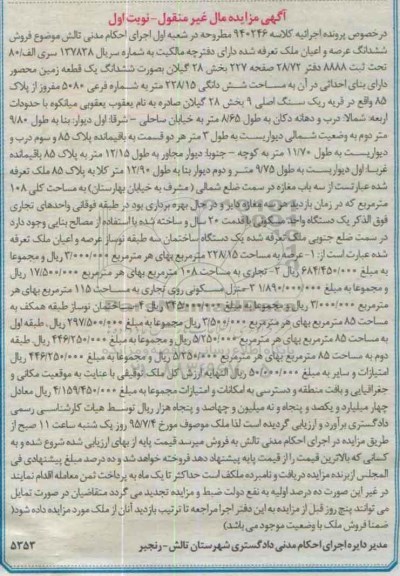 آگهی مزایده مال غیر منقول-نوبت اول
درخصوص پرونده اجرائیه کلاسه ۹۴۰۲۴۶ مطروحه در شعبه اول اجرای احکام مدنی تالش موضوع فروش
ششدانگ عرصه و اعیان ملک تعرفه شده دارای دفترچه مالکیت به شماره سریال ۱۳۷۸۳۸ سری الف/۸۰
تحت ثبت ۸۸۸۸ دفتر ۲۸/۷۲ صفحه ۲۲۷ بخش ۲۸ گیلان بصورت ششدانگ یک قطعه زمین محصور
دارای بنای احداثی در آن به مساحت شش دانگی ۲۲۸/۱۵ متر به شماره فرعی ۵۰۸۰ مفروز از پلاک
۸۵ واقع در قریه ریک سنگ اصلی ۹ بخش ۲۸ گیلان صادره به نام یعقوب یعقوبی میانکوه با حدودات
اربعه: شمالا: درب و دهانه دکان به طول ۸/۶۵ متر به خیابان ساحلی - شرقا: اول دیوار: بنا به طول ۹/۸۰
متر دوم به وضعیت شمالی دیواریست به طول ۳ متر هر دو قسمت به باقیمانده پلاک ۸۵ و سوم درب و
دیواریست به طول ۱۱/۷۰ متر به کوچه - جنوبا: دیوار مجاور به طول ۱۲/۱۵ متر به پلاک ۸۵ باقیمانده
غربا: اول دیواریست به طول ۹/۷۵ متر و دوم دیوار بنا به طول ۱۲/۹۰ متر کلا به پلاک ۸۵ ملک تعرفه
شده عبارتست از سه باب مغازه در سمت ضلع شمالی (مشرف به خیابان بهارستان) به مساحت کلی ۱۰۸
مترمربع که در زمان بازدید هر سه مغازه دایر و در حال بهره برداری بود در طبقه فوقانی واحدهای تجاری
فوق الذکر یک دستگاه واحد مسکونی با قدمت ۲۰ سال و ساخته شده با استفاده از مصالح بنایی وجود دارد
در سمت ضلع جنوبی ملک تعرفه شده یک دستگاه ساختمان سه طبقه نوساز عرصه و اعیان ملک تعرفه
شده عبارت است از: ۱- عرصه به مساحت ۲۲۸/۱۵ مترمربع بهای هر مترمربع ۳/۰۰۰/۰۰۰ ریال و مجموعا
به مبلغ ۶۸۴/۴۵۰/۰۰۰ ریال ۲- تجاری به مساحت ۱۰۸ مترمربع بهای هر مترمربع ۱۷/۵۰۰/۰۰۰ ریال
و مجموعا به مبلغ ۱/۸۹۰/۰۰۰/۰۰۰ ۳- منزل مسکونی روی تجاری به مساحت ۱۱۵ مترمربع بهای هر
مترمربع ۳/۰۰۰/۰۰۰ ریال و مجموعا به مبلغ ۳۴۵/۰۰۰/۰۰۰ ریال ۴- ساختمان نوساز طبقه همکف به
مساحت ۸۵ مترمربع بهای هر مترمربع ۳/۵۰۰/۰۰۰ ریال مجموعا به مبلغ ۲۹۷/۵۰۰/۰۰۰ ریال، طبقه اول
به مساحت ۸۵ مترمربع بهای هر مترمربع ۵/۲۵۰/۰۰۰ ریال و مجموعا به مبلغ ۴۴۶/۲۵۰/۰۰۰ ریال طبقه
دوم به مساحت ۸۵ مترمربع بهای هر مترمربع ۵/۲۵۰/۰۰۰ ریال و مجموعا به مبلغ ۴۴۶/۲۵۰/۰۰۰ ریال
امتیازات و سایر به مبلغ ۵۰/۰۰۰/۰۰۰ ریال النهایه ارزش کل ملک توقیفی با عنایت به موقعیت مکانی و
جغرافیایی و بافت منطقه و دسترسی به امکانات و امتیازات مجموعا به مبلغ ۴/۱۵۹/۴۵۰/۰۰۰ ریال معادل
چهار میلیارد و یکصد و پنجاه و نه میلیون و چهاصد و پنجاه هزار ریال توسط هیات کارشناسی رسمی
دادگستری برآورد و ارزیابی گردیده است لذا ملک موصوف مورخ ۹۵/۷/۴ روز یک شنبه ساعت ۱۱ صبح از
طریق مزایده در اجرای احکام مدنی تالش به فروش میرسد قیمت پایه از بهای ارزیابی شده شروع شده و به
کسانی که بالاترین قیمت را از قیمت پایه پیشنهاد دهد فروخته خواهد شد و ده درصد مبلغ پیشنهادی فی
المجلس از برنده مزایده دریافت و نامبرده مکلف است حداکثر تا یک ماه به پرداخت ثمن معامله اقدام نمایند
در غیر این صورت ده درصد اولیه به نفع دولت ضبط و مزایده تجدید می گردد متقاضیان در صورت تمایل
می توانند پنج روز قبل از مزایده به این دفتر اجرا مراجعه تا ترتیب بازدید آنان از ملک مورد مزایده داده شود(
ضمنا فروش ملک با وضعیت موجود می باشد)
مدیر دایره اجرای احکام مدنی دادگستری شهرستان تالش- رنجبر ۵۳۵۳